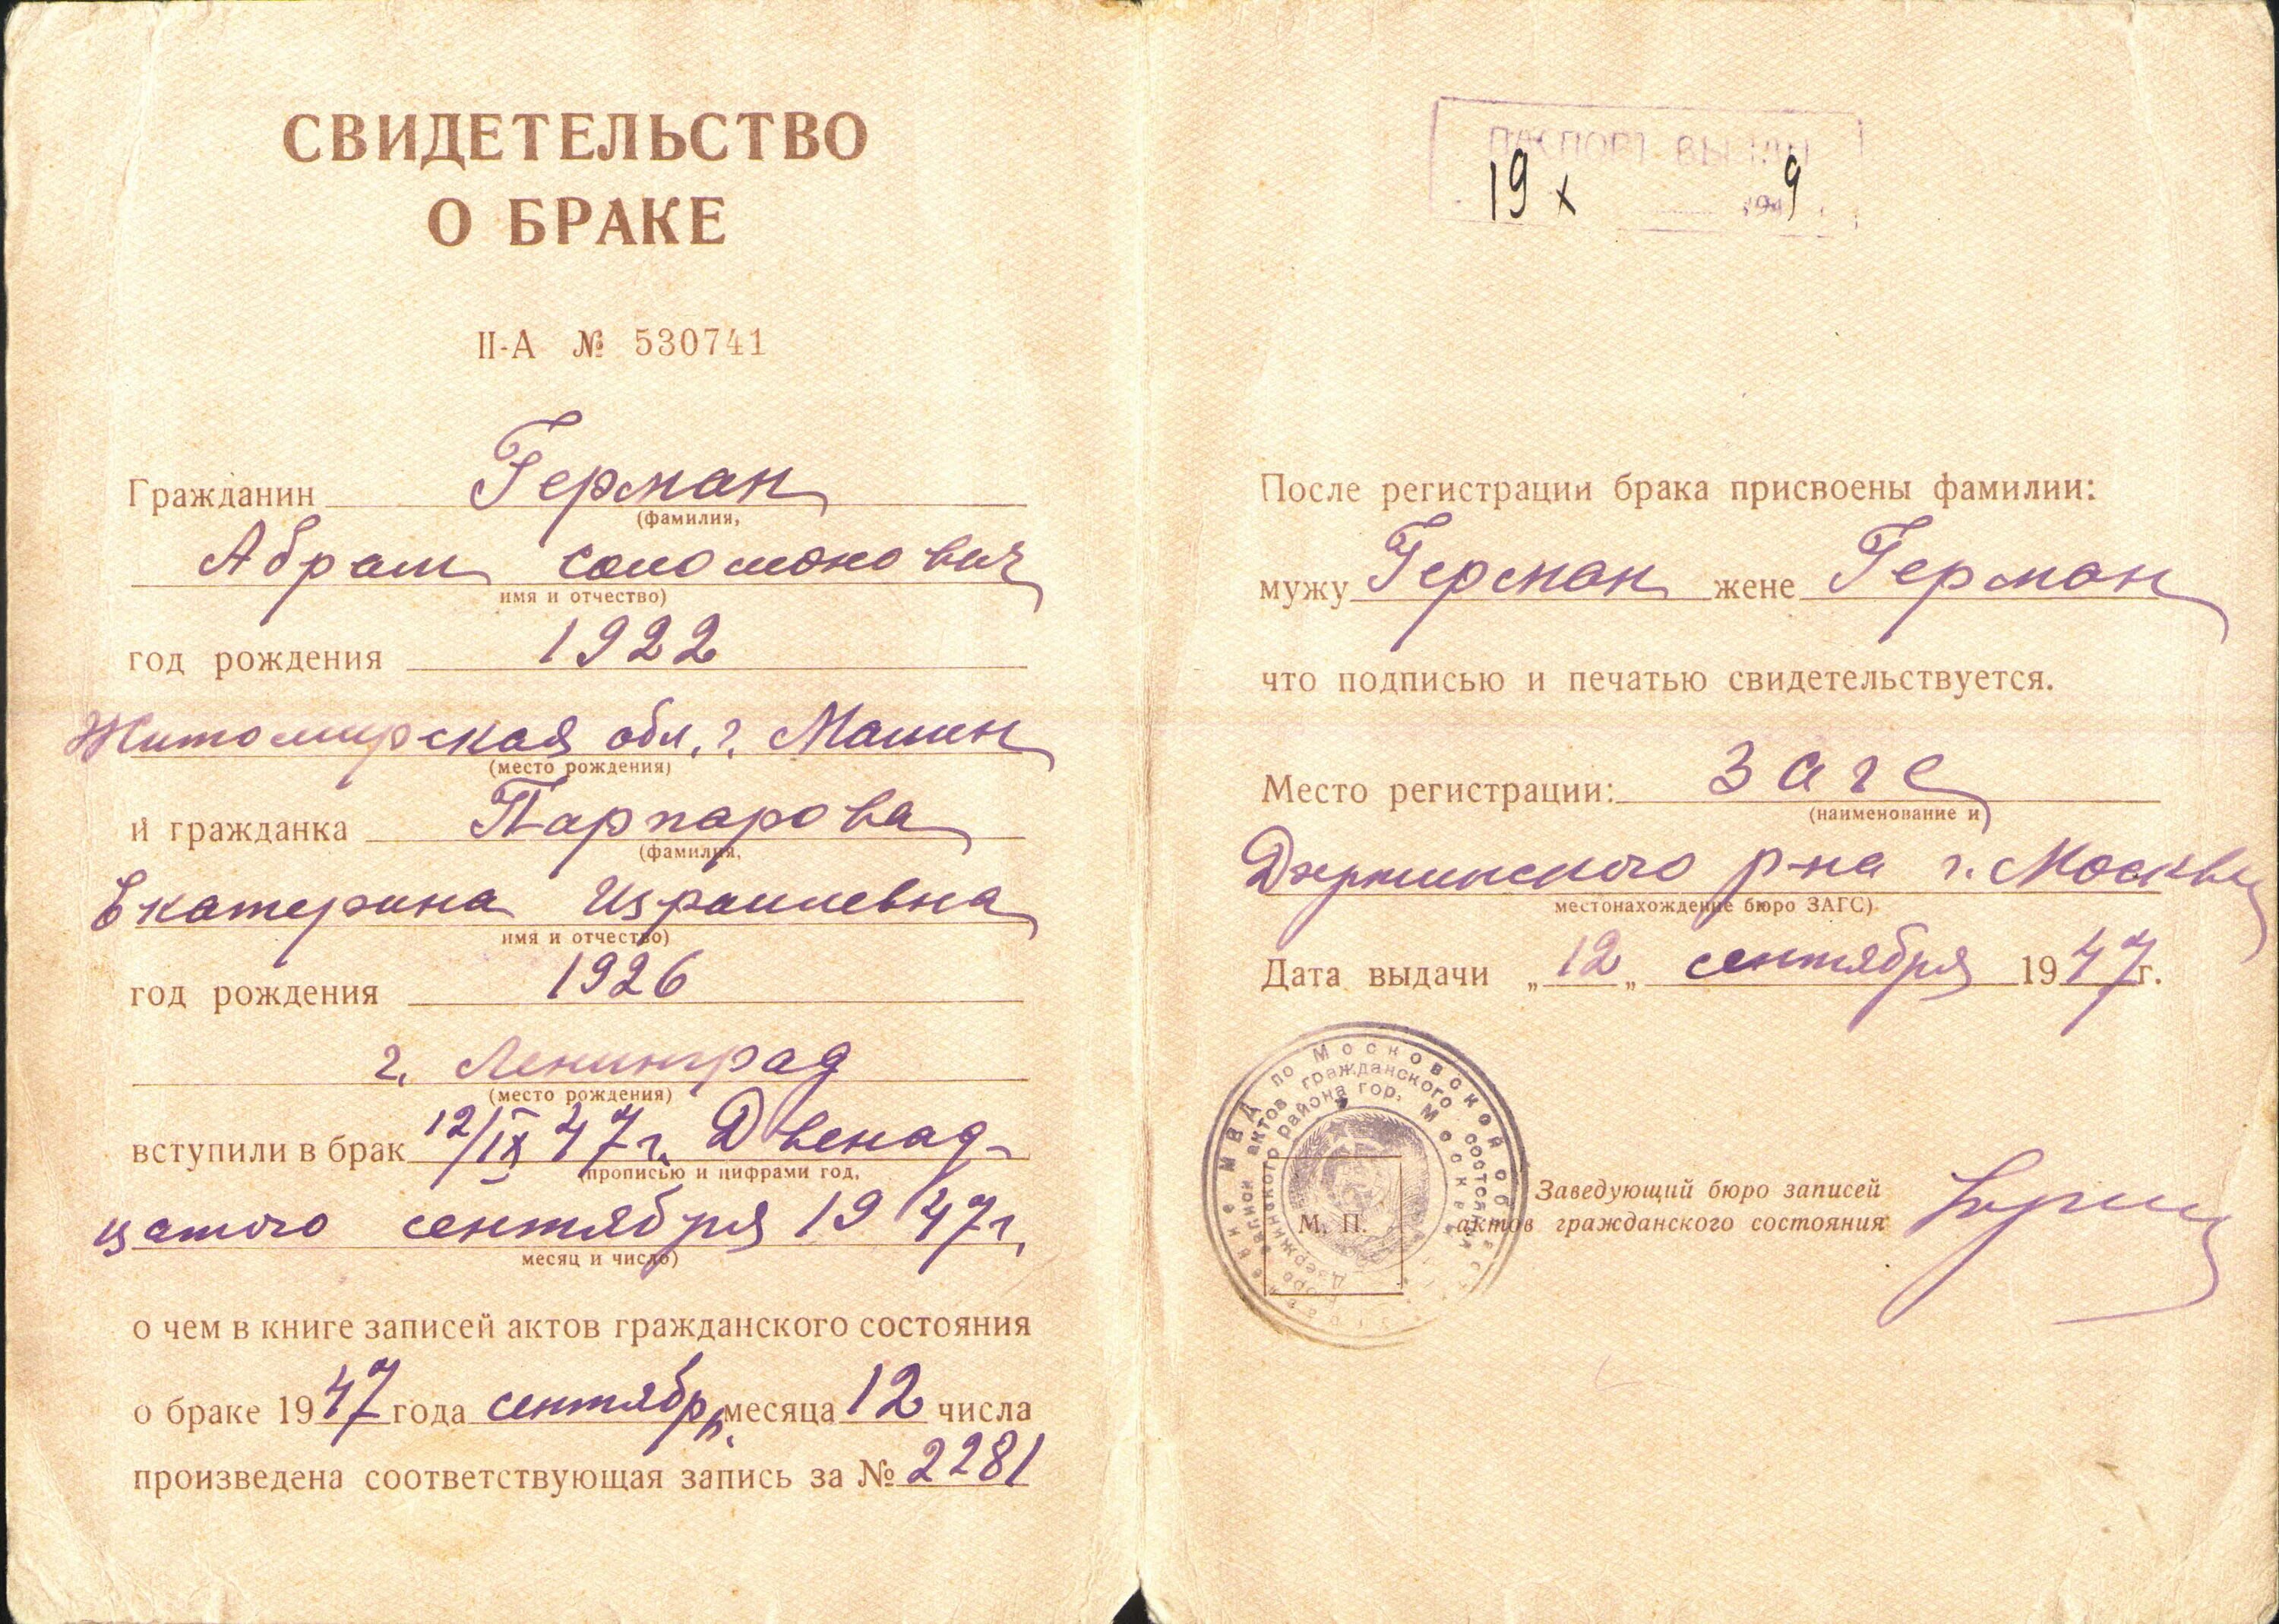 СВИДЕТЕЛЬСТВО
О БРАКЕ
II-А № 530741
Гражданин Герман
(фамилия,
Абрам Соломонович
имя и отчество)
год рождения 1922
Житомирская обл. г. Малин
(место рождения)
и гражданка Парпарова
(фамилия,
Екатерина Израилевна
имя и отчество)
год рождения 1926
г. Ленинград
(место рождения)
вступили в брак 12/IX 47г. Двенад-
(прописью и цифрами год,
цатого сентября 1947г.
месяц и число)
о чем в книге записей актов гражданского состояния
о браке 1947 года сентябр. месяца 12 числа
произведена соответствующая запись за № 2281
ПАСПОРТ ВЫДАН
19 X 1949
После регистрации брака присвоены фамилии:
мужу Герман жене Герман
что подписью и печатью свидетельствуется.
Место регистрации: Загс
(наименование и
Дзержинского р-на г. Москвы
местонахождение бюро ЗАГС)
Дата выдачи „12„ сентября 1947г.
МВД по Московской об
записи актов гражданского состояния
Дзержинского района гор. Москвы
М. П.
Заведующий бюро записей
актов гражданского состояния